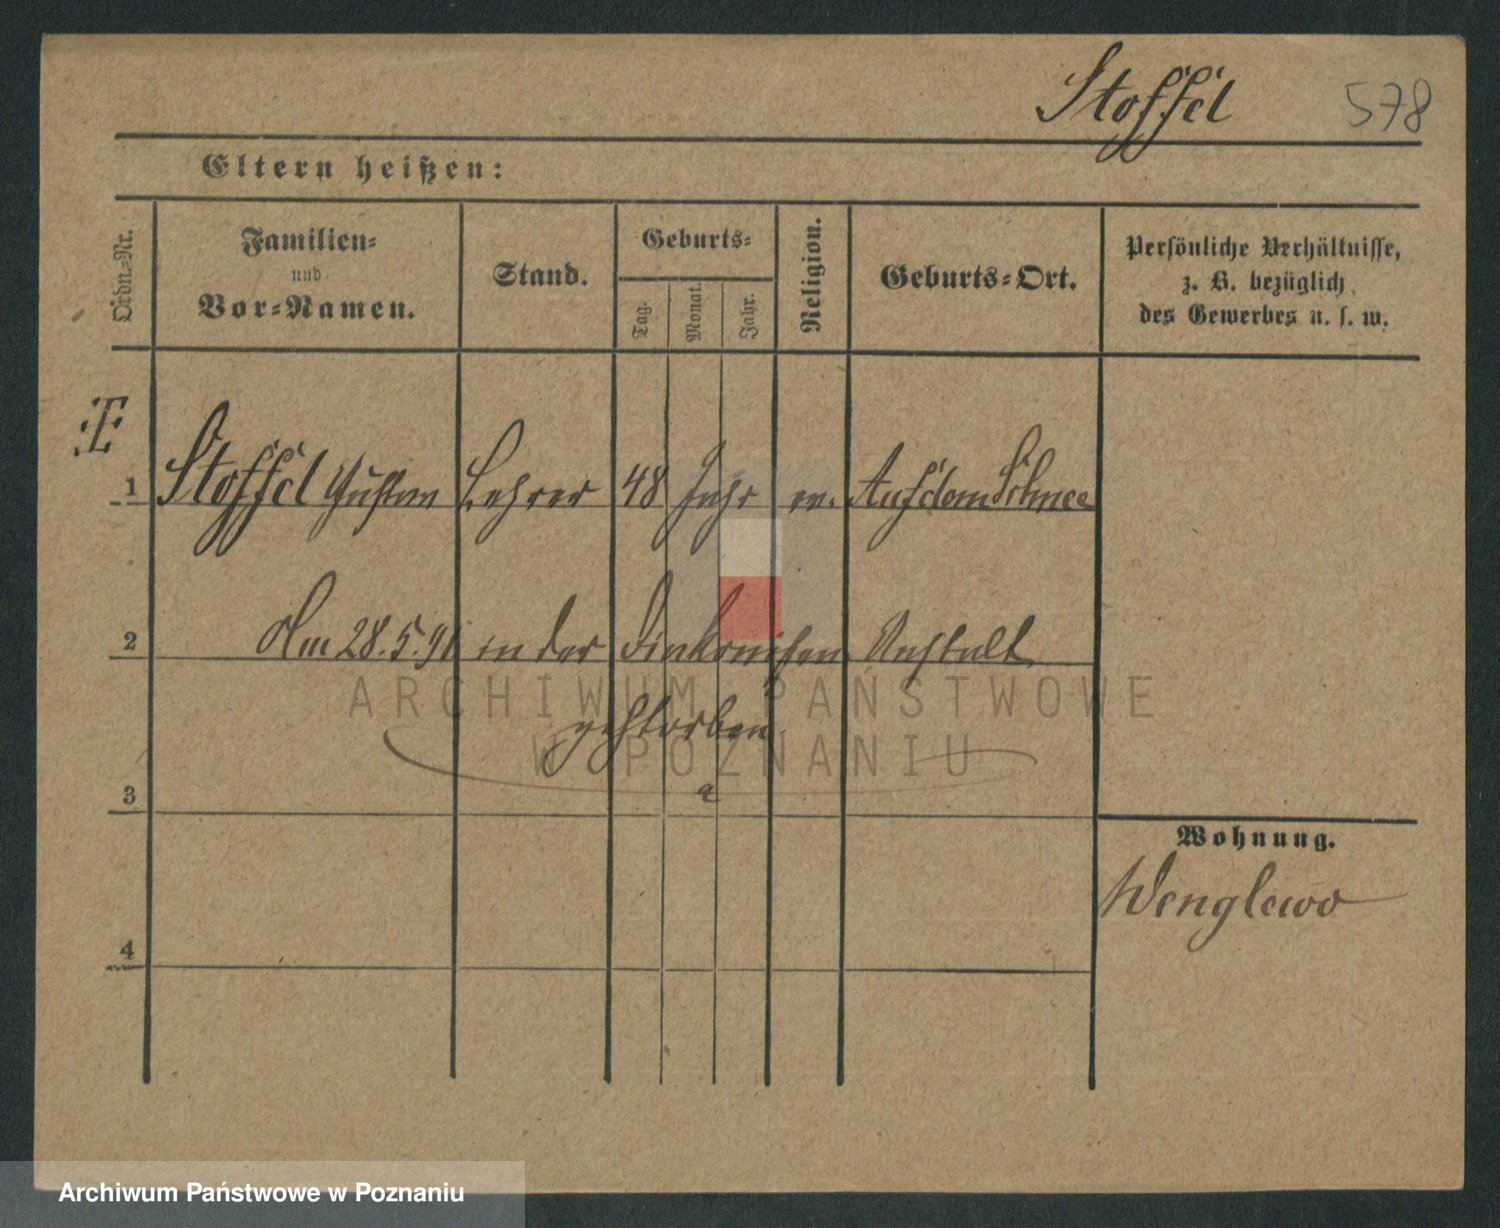 Stoffel 578
Eltern heißen:
Ordn.-Nr.
Familien-
und
Vor-Namen.
Stand.
Geburts-
Tag.
Monat.
Jahr.
Religion.
Geburts-Ort.
Persönliche Verhältnisse,
z. B. bezüglich
des Gewerbes u. s. w.
1 Stoffel Gustav Lehrer 48 Jahr ev. Auf dem Schnee
2 Am 28.5.91 in der Diakonissen Anstalt
gestorben.
3
4
Wohnung.
Wenglewo
ARCHIWUM PAŃSTWOWE
W POZNANIU
Archiwum Państwowe w Poznaniu